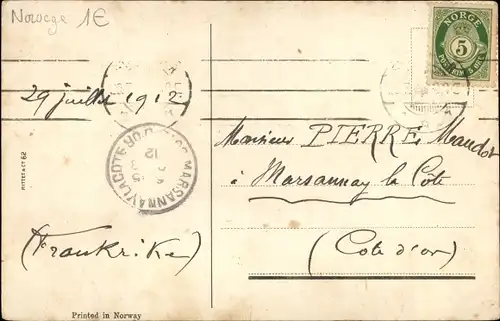 Norvege 1E
NORGE
5
29 juillet 1912
MARSANNAY LA COTE
12
Monsieur PIERRE Maudot
à Marsannay la Côte
(Frankrike)
(Côte d'or)
Printed in Norway